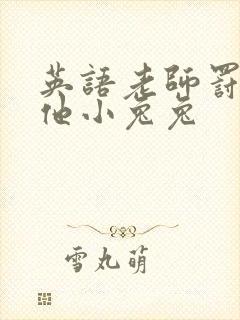 英語老師罰
他小兔兔
雪丸萌